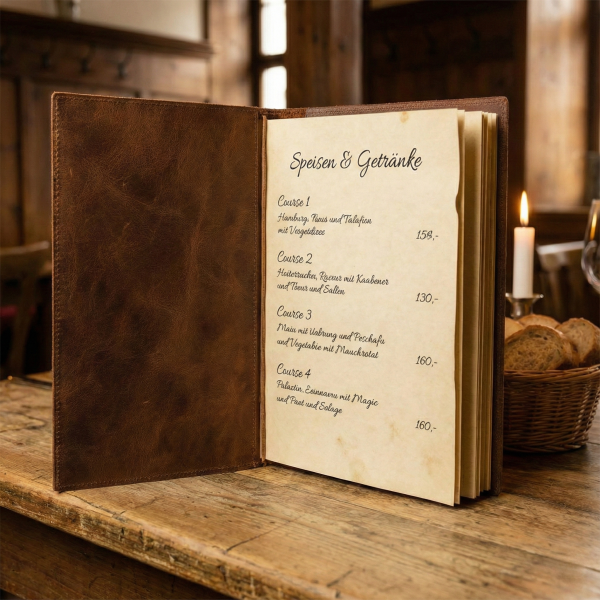 Speisen & Getränke
Course 1
Hamburg, Neus und Talafien
mit Vesgetdizes
159,-
Course 2
Hoiterraches, Raceur mit Kaabener
und Toeur und Sallen
130,-
Course 3
Maiu mit Uobrung und Peschafu
und Vegetabie mit Mauchrotat
160,-
Course 4
Palactin, Esinnavu mit Magic
und Pact und Solage
160,-